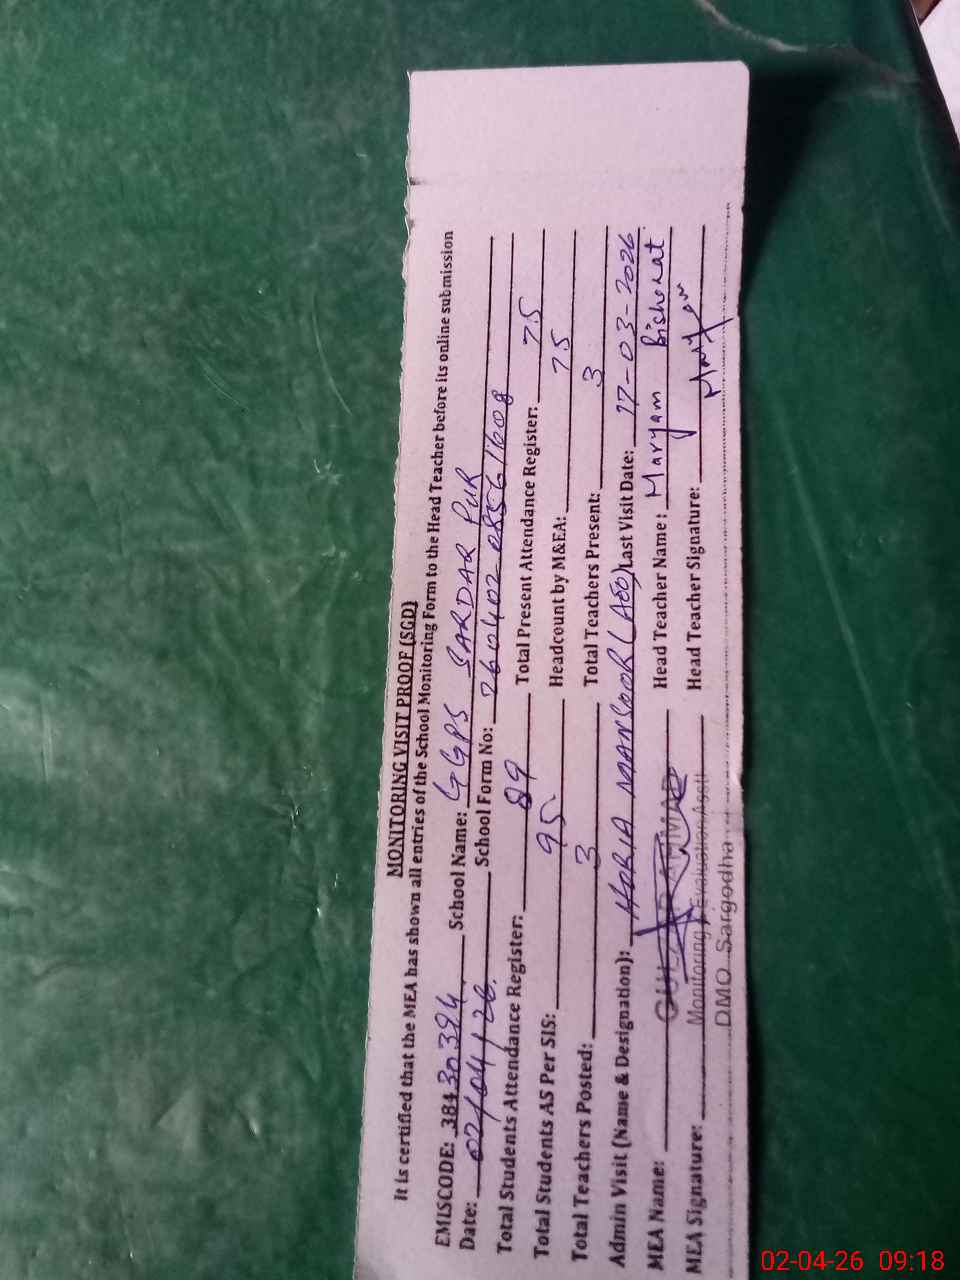 MONITORING VISIT PROOF (SGD)
It is certified that the MEA has shown all entries of the School Monitoring Form to the Head Teacher before its online submission
EMISCODE: 38430394 School Name: GGPS SARDAR PUR
Date: 02/04/26. School Form No: 260402-08556 1608
Total Students Attendance Register: 89 Total Present Attendance Register: 75
Total Students AS Per SIS: 95 Headcount by M&EA: 75
Total Teachers Posted: 3 Total Teachers Present: 3
Admin Visit (Name & Designation): HORIA MANSOOR (AEO) Last Visit Date: 17-03-2026
MEA Name: Head Teacher Name: Maryam Bisharat
MEA Signature: Monitoring Evaluation Asstt Head Teacher Signature: Maryam
DMO Sargodha
02-04-26 09:18